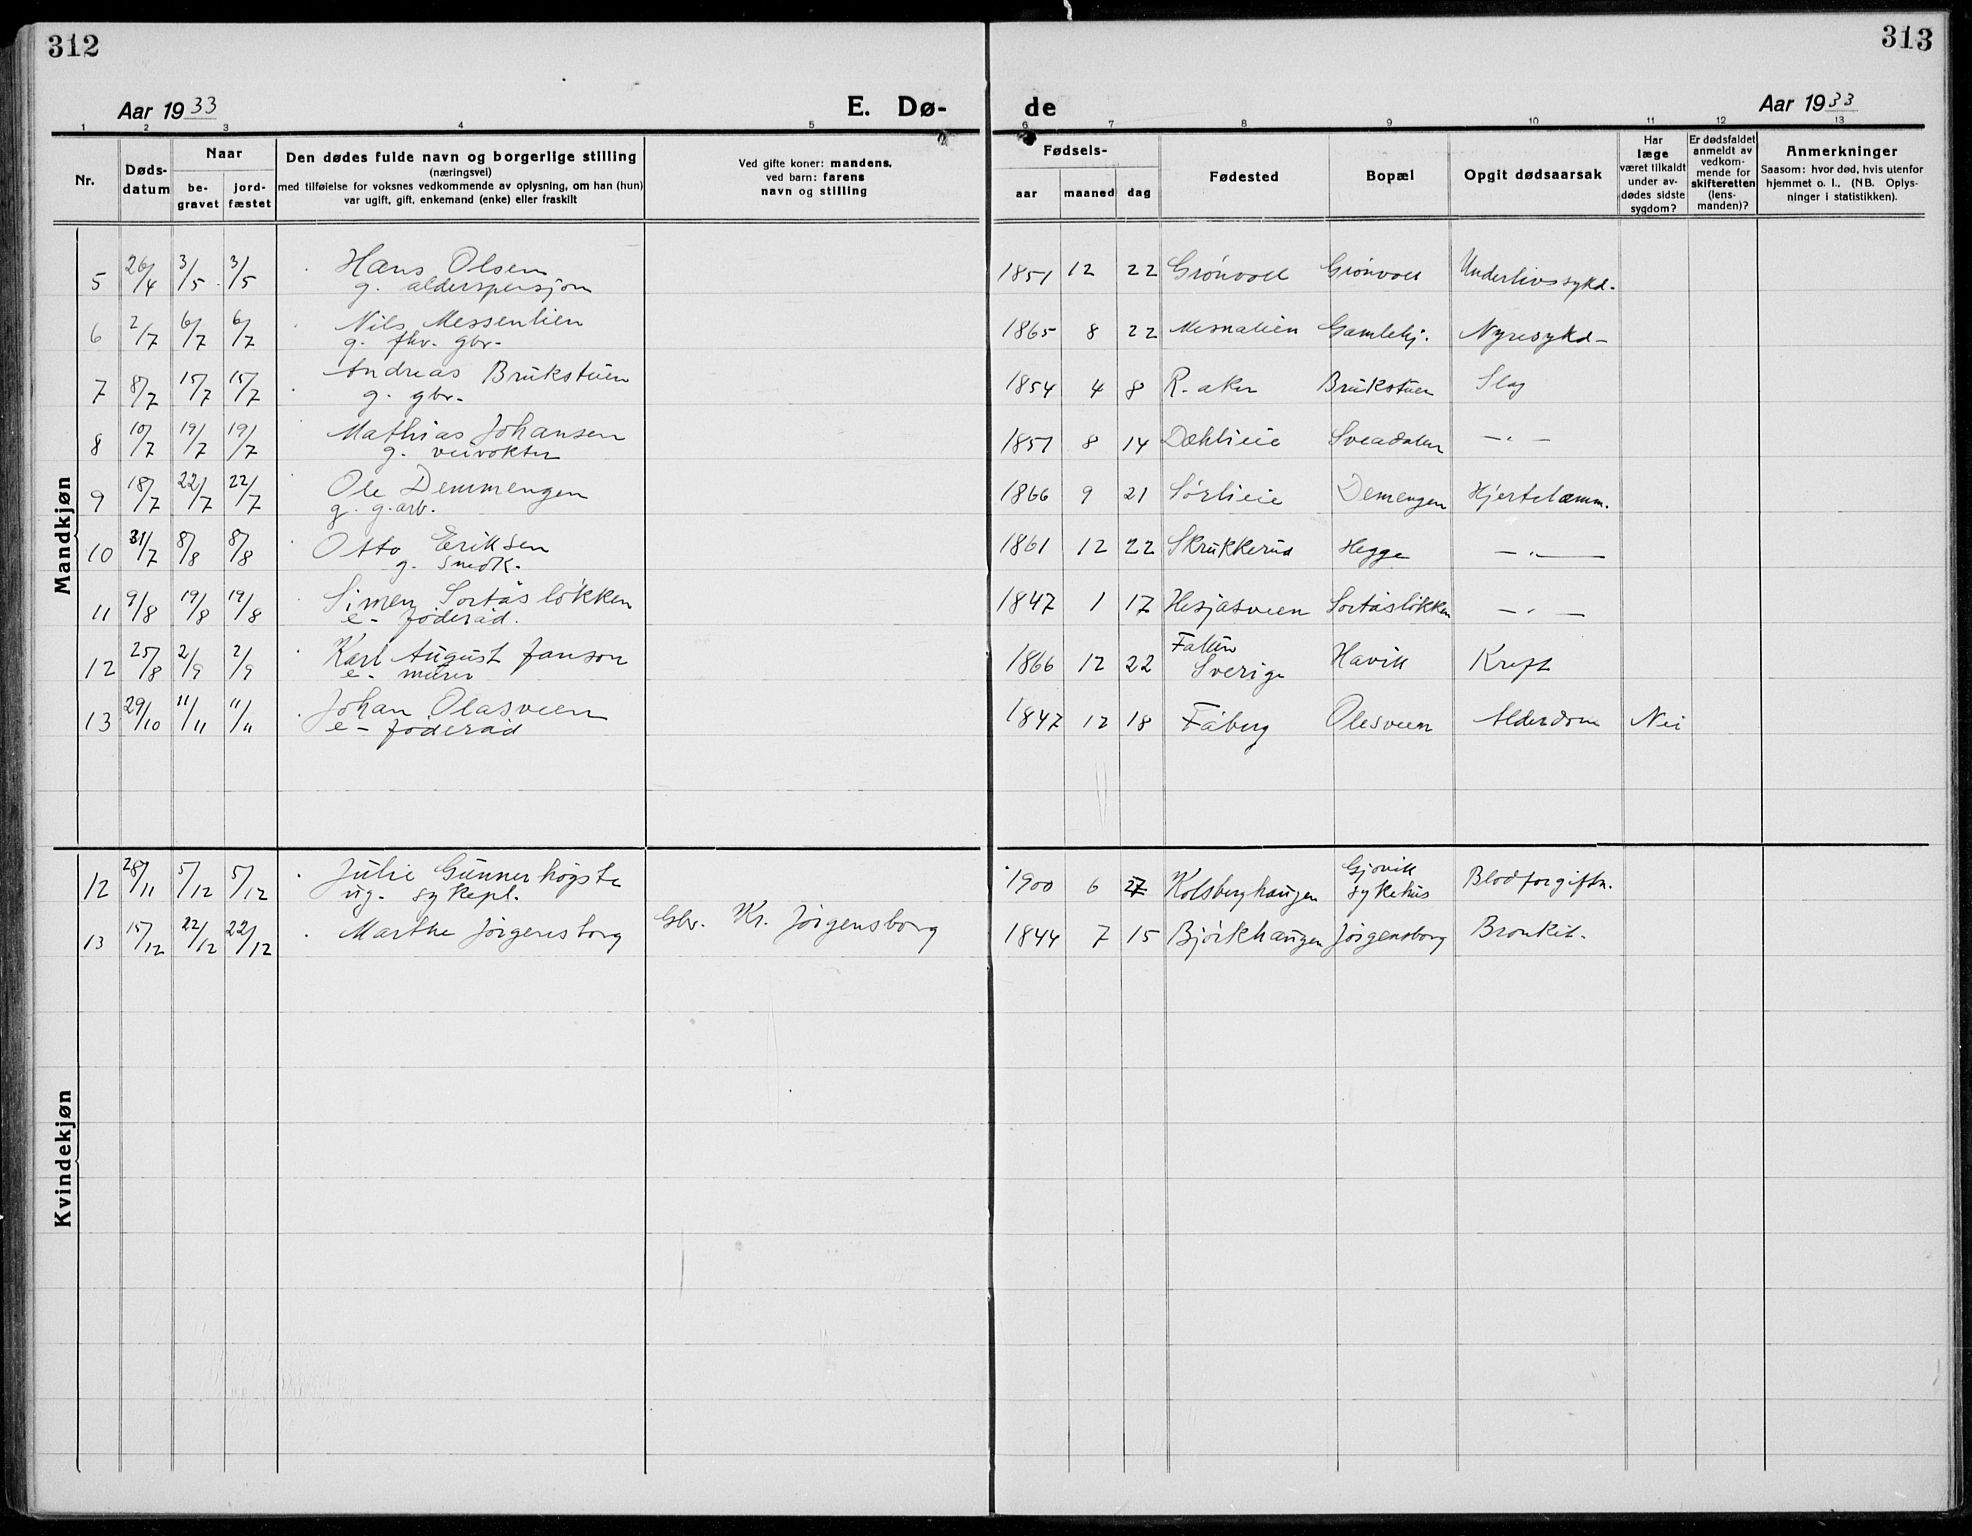 312
313
Aar 1933
E. Dø-
de
Aar 1933
1 2 3 4 5 6 7 8 9 10 11 12 13
Nr.
Døds-
datum
Naar
be-
gravet
jord-
fæstet
Den dødes fulde navn og borgerlige stilling
(næringsvei)
med tilføielse for voksnes vedkommende av oplysning, om han (hun)
var ugift, gift, enkemand (enke) eller fraskilt
Ved gifte koner: mandens,
ved barn: farens
navn og stilling
Fødsels-
aar maaned dag
Fødested
Bopæl
Opgit dødsaarsak
Har
læge
været tilkaldt
under av-
dødes sidste
sygdom?
Er dødsfaldet
anmeldt av
vedkom-
mende for
skifteretten
(lens-
manden)?
Anmerkninger
Saasom: hvor død, hvis utenfor
hjemmet o. l., (NB. Oplys-
ninger i statistikken).
Mandkjøn
5 26/4 3/5 3/5 Hans Olsen 1851 12 22 Grönvoll Grönvoll Underlivssykd.
g. alderspensjon
6 2/7 6/7 6/7 Nils Messenlien 1865 8 22 Mesnalien Gamlehj. Nyresykd-
g. fhv. gbr.
7 8/7 15/7 15/7 Andreas Brukstuen 1854 4 8 R.aker Brukstuen Slag
g. gbr.
8 10/7 19/7 19/7 Mathias Johansen 1851 8 14 Dæhlieie Sveadalen —"—
g. veivokter
9 18/7 22/7 22/7 Ole Demmengen 1866 9 21 Sörlieie Demengen Hjertelamm.
g. g.arb.
10 31/7 8/8 8/8 Otto Eriksen 1861 12 22 Skrukkerud Hegge —"—
g. snedk.
11 9/8 19/8 19/8 Simen Sortåsløkken 1847 1 17 Hesjasveen Sortåsløkken —"—
e- föderåd.
12 25/8 2/9 2/9 Karl August Janson 1866 12 22 Falun Sverige Havik Kreft
e- murer
13 29/10 11/11 11/11 Johan Olasveen 1847 12 18 Fåberg Olesveen Alderdom Nei
e- föderåd
Kvindekjøn
12 28/11 5/12 5/12 Julie Gunnerhögste 1900 6 27 Kolsberghaugen Gjøvik sykehus Blodforgiftn.
ug. sykepl.
13 15/12 22/12 22/12 Marthe Jörgensborg Gbr. Kr. Jörgensborg 1844 7 15 Bjørkhaugen Jörgensborg Bronkit.